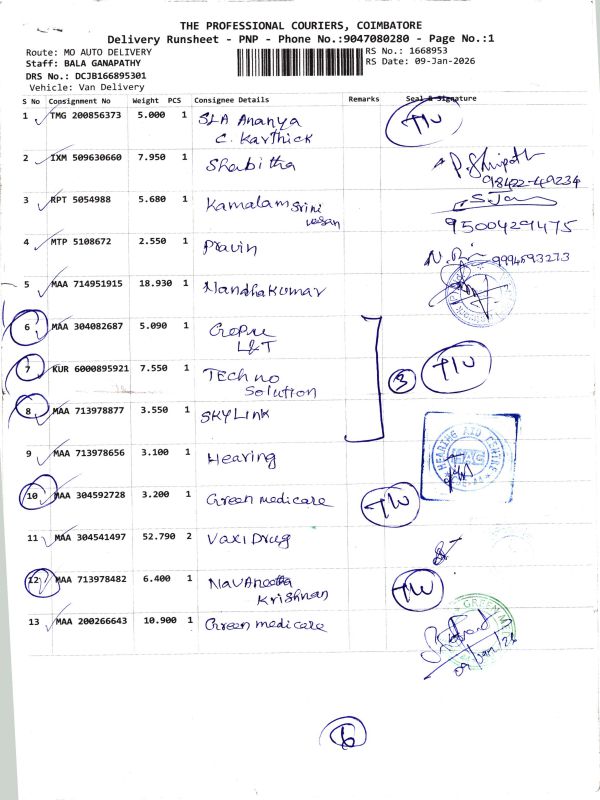 THE PROFESSIONAL COURIERS, COIMBATORE
Delivery Runsheet - PNP - Phone No.:9047080280 - Page No.:1
Route: MO AUTO DELIVERY
RS No.: 1668953
Staff: BALA GANAPATHY
RS Date: 09-Jan-2026
DRS No.: DCJB166895301
Vehicle: Van Delivery
S No Consignment No Weight PCS Consignee Details Remarks Seal & Signature
1 TMG 200856373 5.000 1 SLA Ananya
C. Karthick
2 IXM 509630660 7.950 1 Shabitha
98422-49234
3 RPT 5054988 5.680 1 Kamalam Srini
vasan
9500429475
4 MTP 5108672 2.550 1 Pravin
9994593273
5 MAA 714951915 18.930 1 Nandhakumar
6 MAA 304082687 5.090 1
L&T
7 KUR 6000895921 7.550 1 Techno
Solution
3
8 MAA 713978877 3.550 1 SKYLink
9 MAA 713978656 3.100 1 Hearing
HEARING AID CENTRE
10 MAA 304592728 3.200 1 Green medicare
11 MAA 304541497 52.790 2 Vaxi Drug
12 MAA 713978482 6.400 1 Navaneetha
Krishnan
13 MAA 200266643 10.900 1 Green medicare
GREEN
09/Jan/26
6